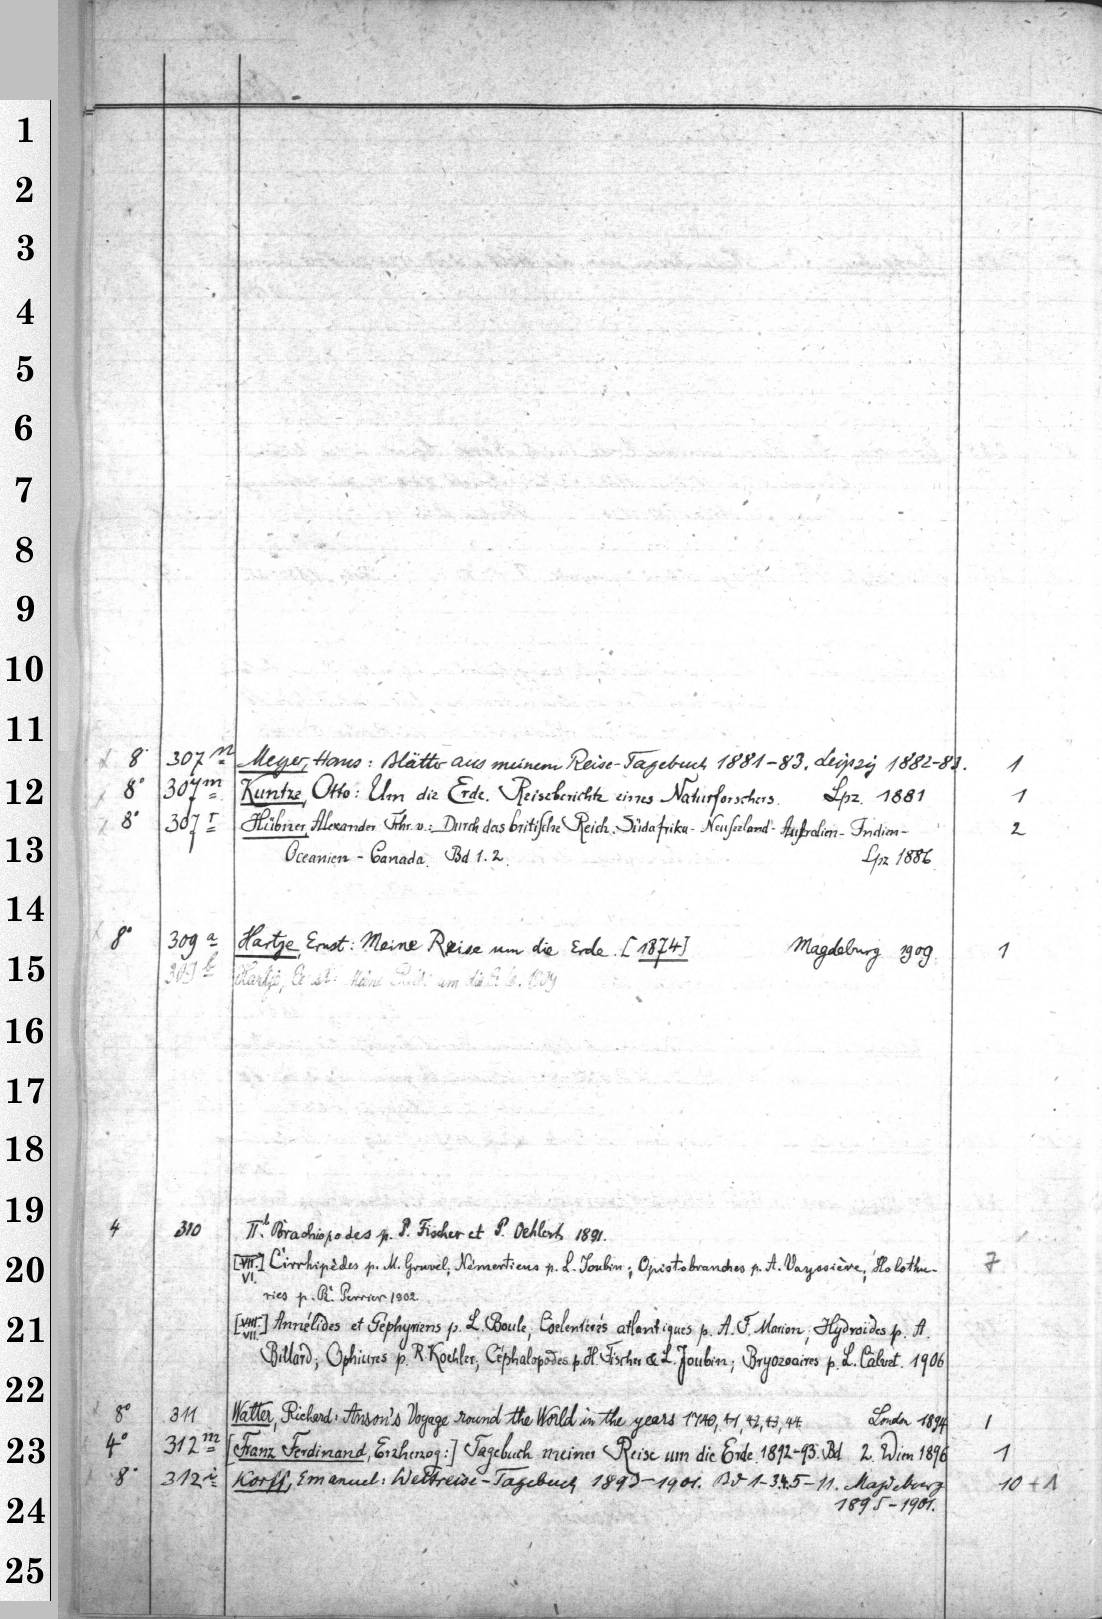 1
2
3
4
5
6
7
8
9
10
11
8° 307 n Meyer, Hans: Blätter aus meinem Reise-Tagebuch 1881-83. Leipzig 1882-83. 1
12
8° 307 m Kuntze, Otto: Um die Erde. Reiseberichte eines Naturforschers. Lpz. 1881 1
8° 307 r Hübner, Alexander Frhr. v.: Durch das britische Reich. Südafrika- Neuseeland- Australien- Indien- 2
13
Oceanien - Canada. Bd 1.2. Lpz 1886
14
8° 309 a Hartje, Ernst: Meine Reise um die Erde. [1874] Magdeburg 1909. 1
15
309 b Hartje, Ernst: Meine Reise um die Erde. 1909
16
17
18
19
4 310 II.t Brachiopodes p. P. Fischer et P. Oehlert 1891.
20
[VII.] VI. Cirrhipèdes p. M. Gruvel; Némertiens p. L. Joubin; Opistobranches p. A. Vayssière; Holothu- 7
ries p. R. Perrier 1902
21
[VIII.] VII. Annélides et Géphyriens p. L. Roule; Coelentérés atlantiques p. A. F. Marion; Hydroides p. A.
Billard; Ophiures p. R. Koehler; Céphalopodes p. H. Fischer & L. Joubin; Bryozoaires p. L. Calvet. 1906
22
8° 311 Walter, Richard: Anson's Voyage round the World in the years 1740, 41, 42, 43, 44 London 1894 1
23
4° 312 m [Franz Ferdinand, Erzherzog:] Tagebuch meiner Reise um die Erde 1892-93. Bd 2. Wien 1896 1
8° 312 r Korff, Emanuel: Weltreise-Tagebuch 1893-1901. Bd 1-3.4.5-11. Magdeburg 10 + 1
24
1895-1901.
25